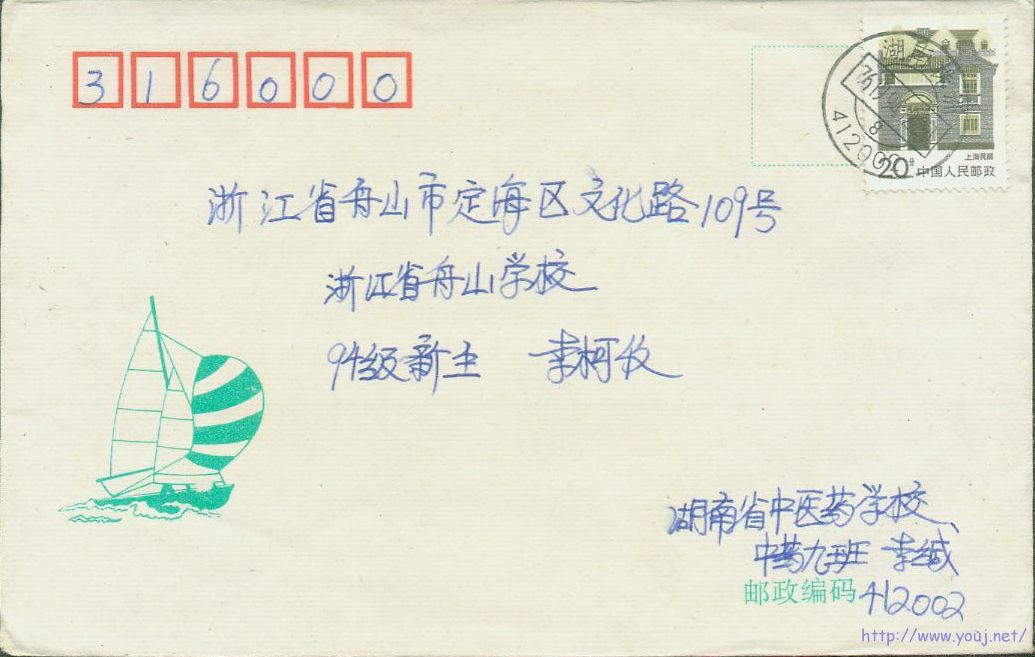 316000
上海民居
20分
中国人民邮政
湖南
412000
8
浙江省舟山市定海区文化路109号
浙江省舟山学校
94级新生 李柯
湖南省中医药学校
中药九班 李缄
邮政编码 412002
http://www.youj.net/